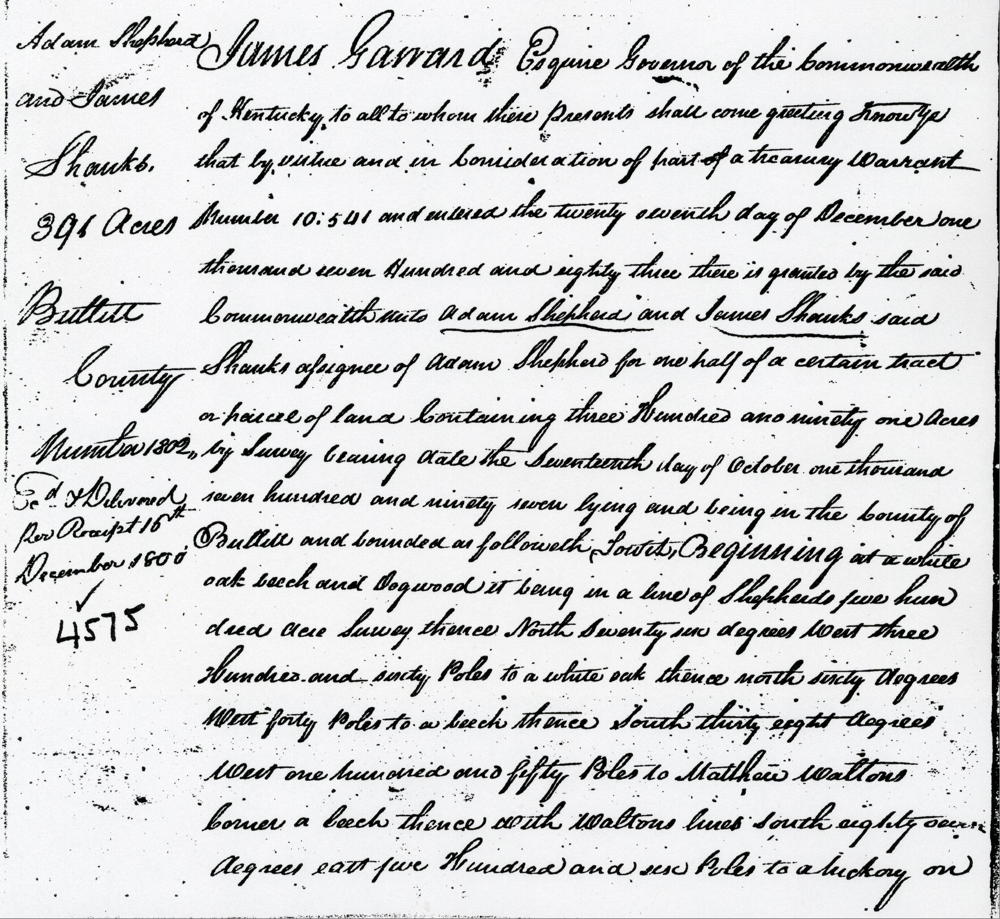 Adam Shepherd
and James
Shanks.
391 Acres
Bullitt
County
Number 1802,,
Ex.d & Delivered
Per Receipt 16th
December 1800
4575
James Garrard Esquire Governor of the Commonwealth
of Kentucky, to all to whom these Presents shall come greeting Know Ye
that by virtue and in Consideration of part of a treasury Warrant
Number 10:541 and entered the twenty seventh day of December one
thousand seven Hundred and eighty three there is granted by the said
Commonwealth unto Adam Shepherd and James Shanks said
Shanks assignee of Adam Shepherd for one half of a certain tract
or parcel of land Containing three Hundred and ninety one Acres
by Survey bearing date the Seventeenth day of October one thousand
seven hundred and ninety seven lying and being in the County of
Bullitt and bounded as followeth Towit, Beginning at a white
oak beech and Dogwood it being in a line of Shepherds five hun
dred Acre Survey thence North Seventy six degrees West three
Hundred and sixty Poles to a white oak thence north sixty degrees
West forty Poles to a beech thence South thirty eight degrees
West one hundred and fifty Poles to Matthew Waltons
Corner a beech thence with Waltons lines south eighty seven
degrees east five Hundred and six Poles to a hickory on